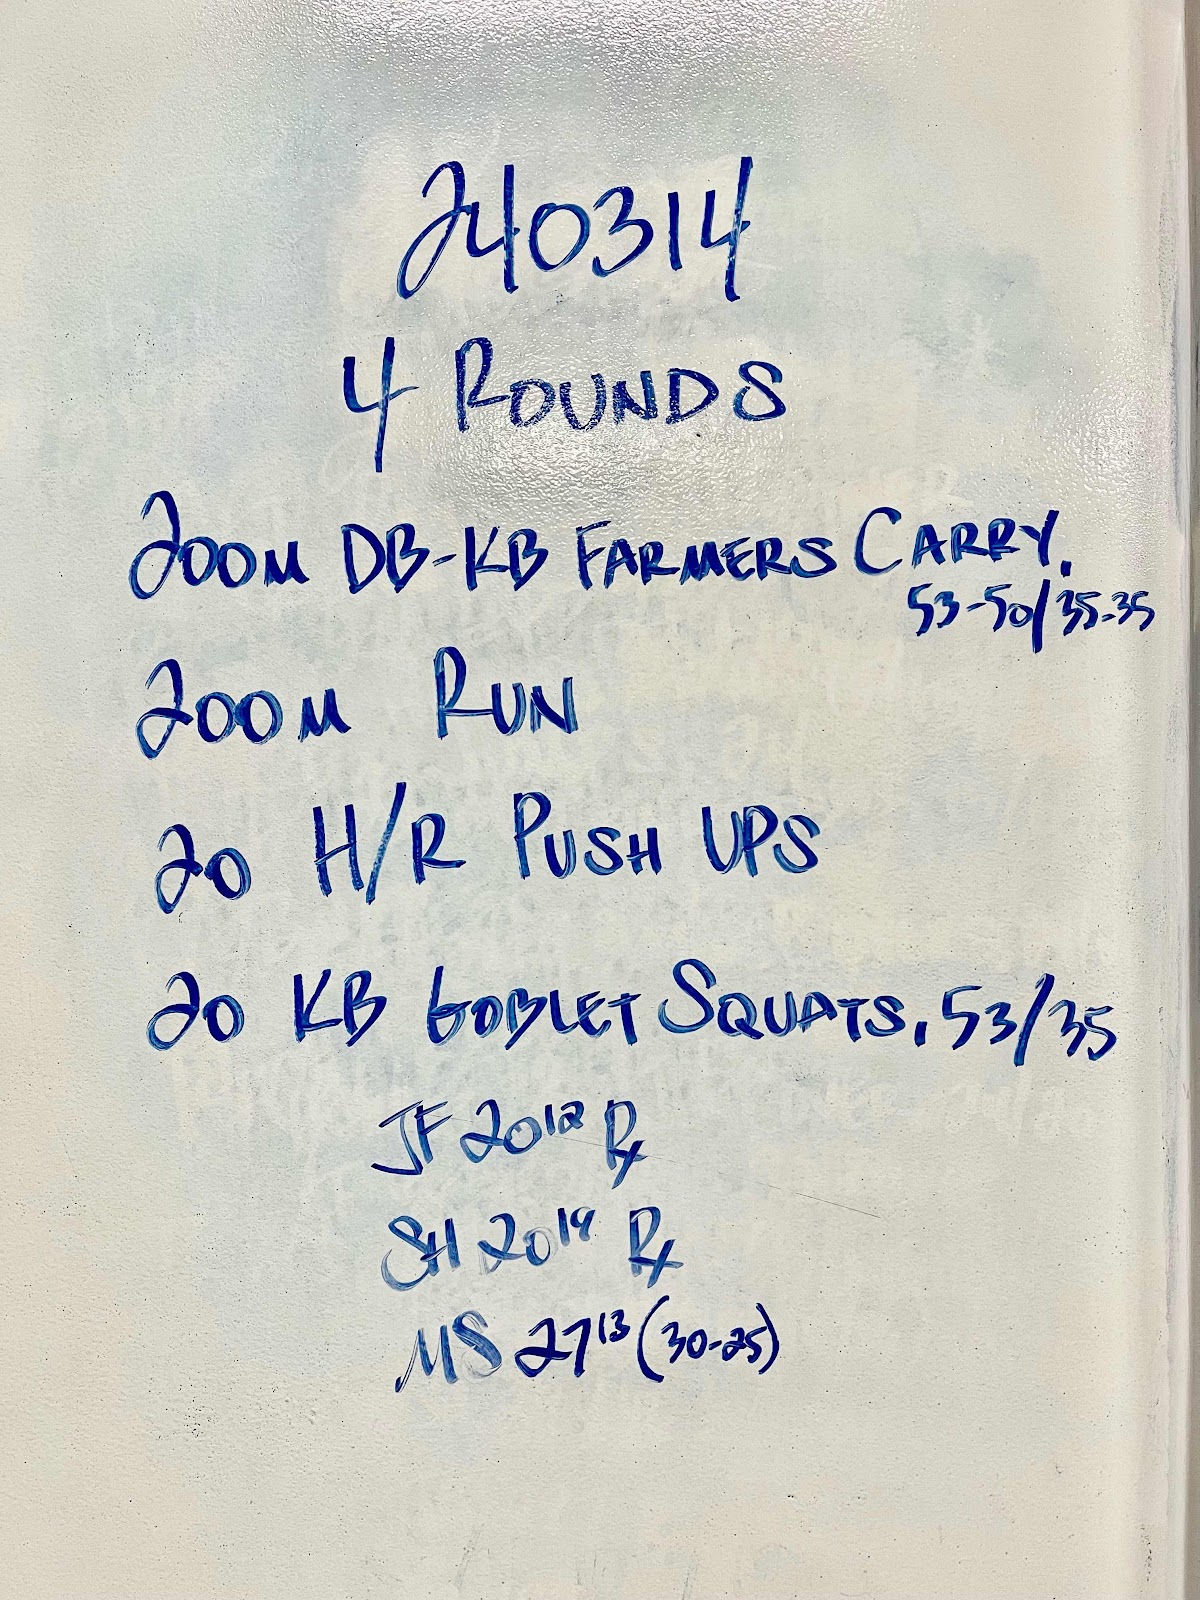 240314
4 ROUNDS
200M DB-KB FARMERS CARRY.
53-50/35-35
200M RUN
20 H/R PUSH UPS
20 KB GOBLET SQUATS, 53/35
JF 20¹² Rx
SH 20¹⁹ Rx
MS 27¹³ (30-25)